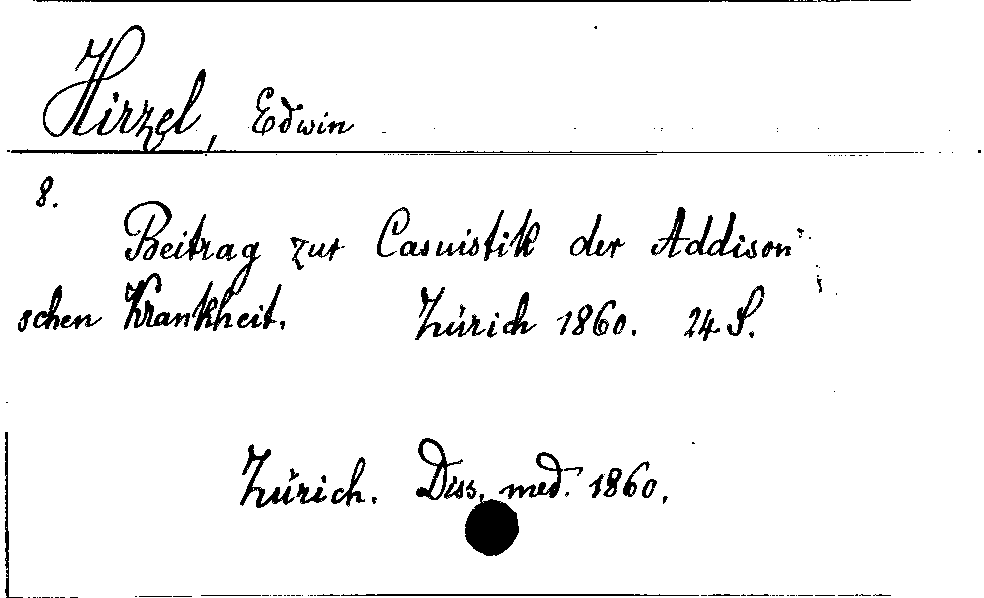 Hirzel, Edwin
8.
Beitrag zur Casuistik der Addison'
schen Krankheit. Zürich 1860. 24 S.
Zürich. Diss. med. 1860.